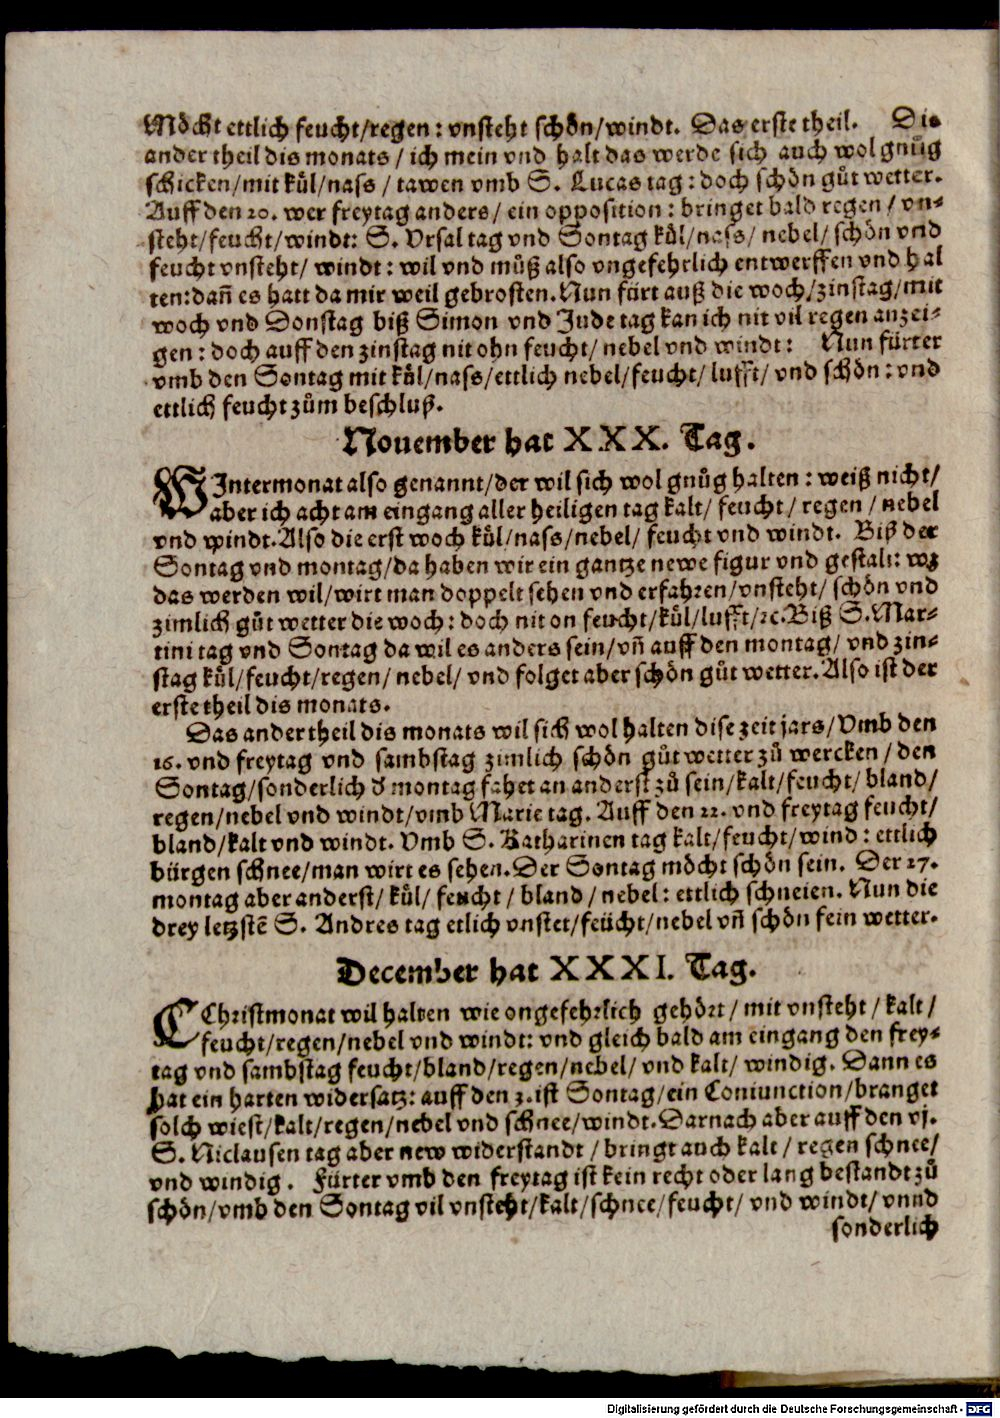 Möcht ettlich feucht/regen: vnsteht schön/windt. Das erste theil. Die
ander theil dis monats / ich mein vnd halt das werde sich auch wol gnůg
schicken/mit kůl/nass / tawen vmb S. Lucas tag: doch schön gůt wetter.
Auff den 20. wer freytag anders/ ein opposition: bringet bald regen / vn-
steht/feucht/windt: S. Vrsal tag vnd Sontag kůl/nass/ nebel/ schön vnd
feucht vnsteht/ windt: wil vnd můß also vngefehrlich entwerffen vnd hal
ten: dañ es hatt da mir weil gebrosten. Nun fürt auß die woch/zinstag/mit
woch vnd Donstag biß Simon vnd Jude tag kan ich nit vil regen anzei-
gen: doch auff den zinstag nit ohn feucht/ nebel vnd windt: Nun fürter
vmb den Sontag mit kůl/nass/ettlich nebel/feucht/ lufft/ vnd schön: vnd
ettlich feucht zům beschluß.
Nouember hat XXX. Tag.
WIntermonat also genannt/der wil sich wol gnůg halten: weiß nicht/
aber ich acht am eingang aller heiligen tag kalt/ feucht/ regen / nebel
vnd windt. Also die erst woch kůl/nass/nebel/ feucht vnd windt. Biß der
Sontag vnd montag/da haben wir ein gantze newe figur vnd gestalt: wz
das werden wil/wirt man doppelt sehen vnd erfahren/vnsteht/ schön vnd
zimlich gůt wetter die woch: doch nit on feucht/kůl/lufft/ꝛc. Biß S. Mar-
tini tag vnd Sontag da wil es anders sein/vñ auff den montag/ vnd zin-
stag kůl/feucht/regen/ nebel/ vnd folget aber schön gůt wetter. Also ist der
erste theil dis monats.
Das ander theil dis monats wil sich wol halten dise zeit jars/Vmb den
16. vnd freytag vnd sambstag zimlich schön gůt wetter zů wercken / den
Sontag/sonderlich d' montag fahet an anderst zů sein/kalt/feucht/ bland/
regen/nebel vnd windt/vmb Marie tag. Auff den 22. vnd freytag feucht/
bland/kalt vnd windt. Vmb S. Katharinen tag kalt/feucht/wind: ettlich
bürgen schnee/man wirt es sehen. Der Sontag möcht schön sein. Der 27.
montag aber anderst/ kůl/ feucht / bland / nebel: ettlich schneien. Nun die
drey letzstē S. Andres tag etlich vnstet/feücht/nebel vñ schön fein wetter.
December hat XXXI. Tag.
CChristmonat wil halten wie ongefehrlich gehört/ mit vnsteht / kalt/
feucht/regen/nebel vnd windt: vnd gleich bald am eingang den frey-
tag vnd sambstag feucht/bland/regen/nebel/ vnd kalt/ windig. Dann es
hat ein harten widersatz: auff den 3. ist Sontag/ein Coniunction/branget
solch wiest/kalt/regen/nebel vnd schnee/windt. Darnach aber auff den vj.
S. Niclausen tag aber new widerstandt / bringt auch kalt / regen schnee/
vnd windig. Fürter vmb den freytag ist kein recht oder lang bestandt zů
schön/vmb den Sontag vil vnsteht/kalt/schnee/feucht/ vnd windt/ vnnd
sonderlich
Digitalisierung gefördert durch die Deutsche Forschungsgemeinschaft - DFG